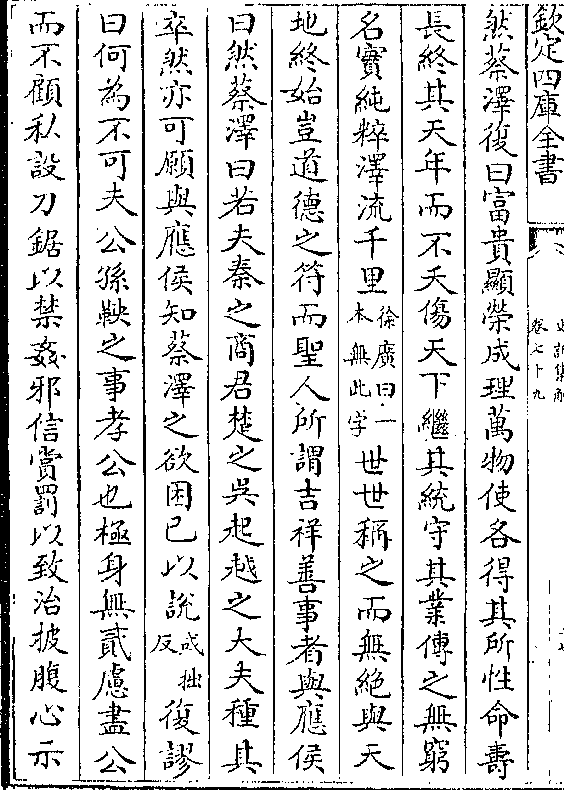 欽定四庫全書
卷七十九
然蔡澤復曰富貴顯榮成理萬物使各得其所性命壽
長終其天年而不夭傷天下繼其統守其業傳之無窮
名實純粹澤流千里徐廣曰一本無此字世世稱之而無絶與天
地終始豈道德之符而聖人所謂吉祥善事者與應侯
曰然蔡澤曰若夫秦之商君楚之吳起越之大夫種其
卒然亦可願與應侯知蔡澤之欲困已以說式拙反復謬
曰何為不可夫公孫鞅之事孝公也極身無貳慮盡公
而不顧私設刀鋸以禁姦邪信賞罰以致治披腹心示